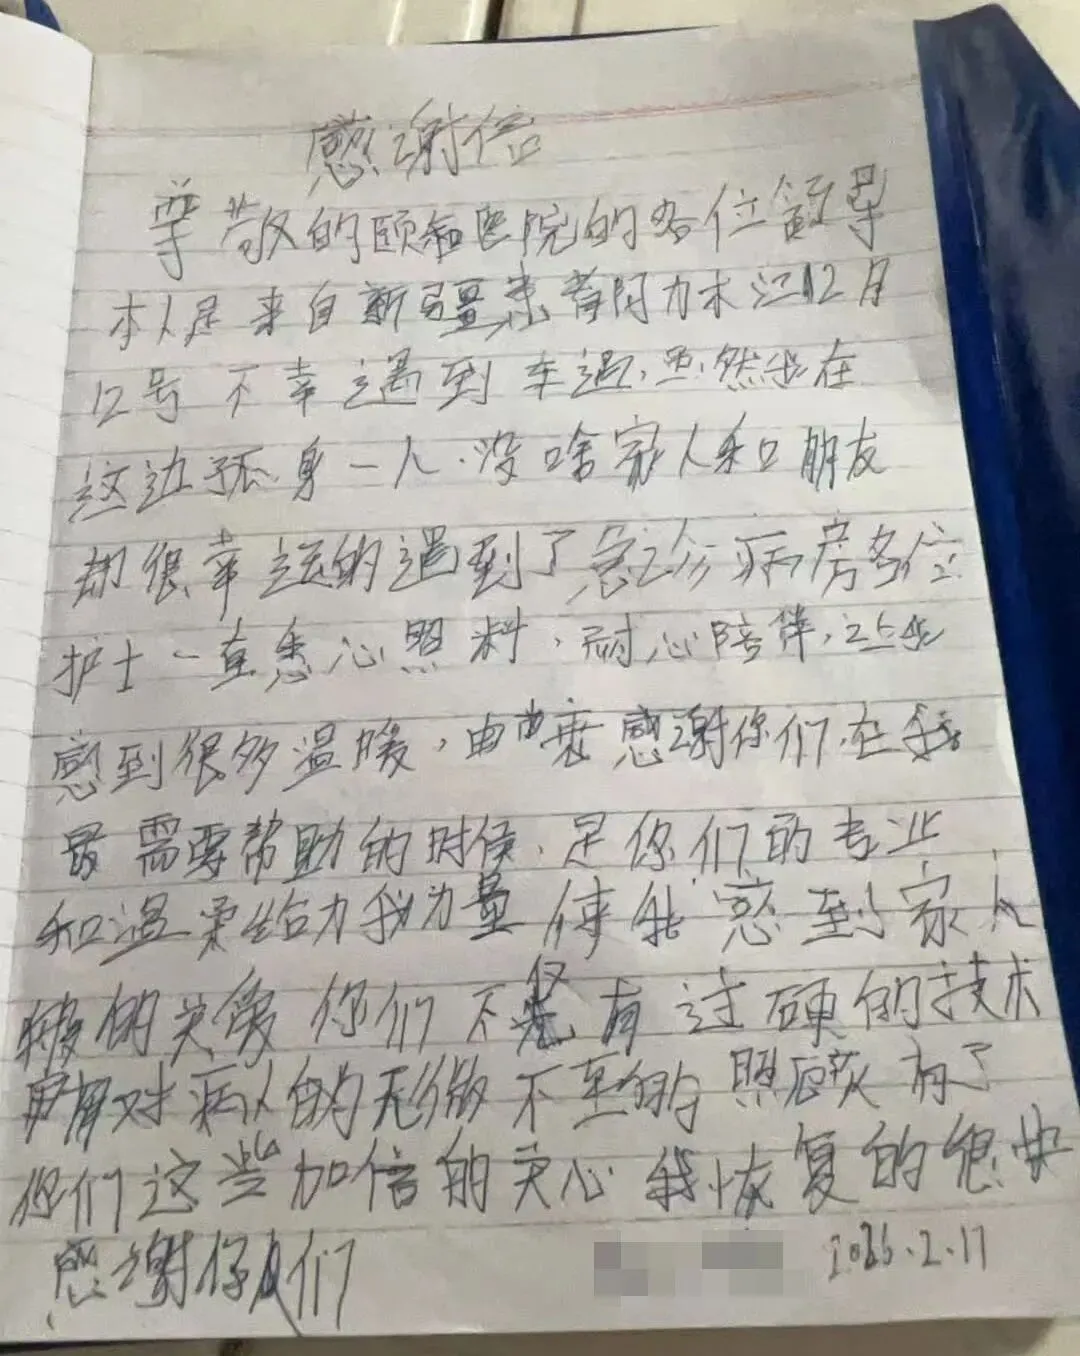 感谢信
尊敬的颐和医院的各位领导
本人是来自新疆患者阿力木江12月
12号不幸遇到车过，虽然我在
这边孤身一人.没啥家人和朋友
却很幸运的遇到了急诊病房各位
护士一直悉心照料，耐心陪伴，让我
感到很多温暖，由衷感谢你们，在我
最需要帮助的时候，是你们的专业
和温柔给力我力量使我感到家人
般的关爱你们不仅有过硬的技术
对病人的无微不至的照顾有了
你们这些加倍的关心我恢复的很快
感谢你们
2026.2.17